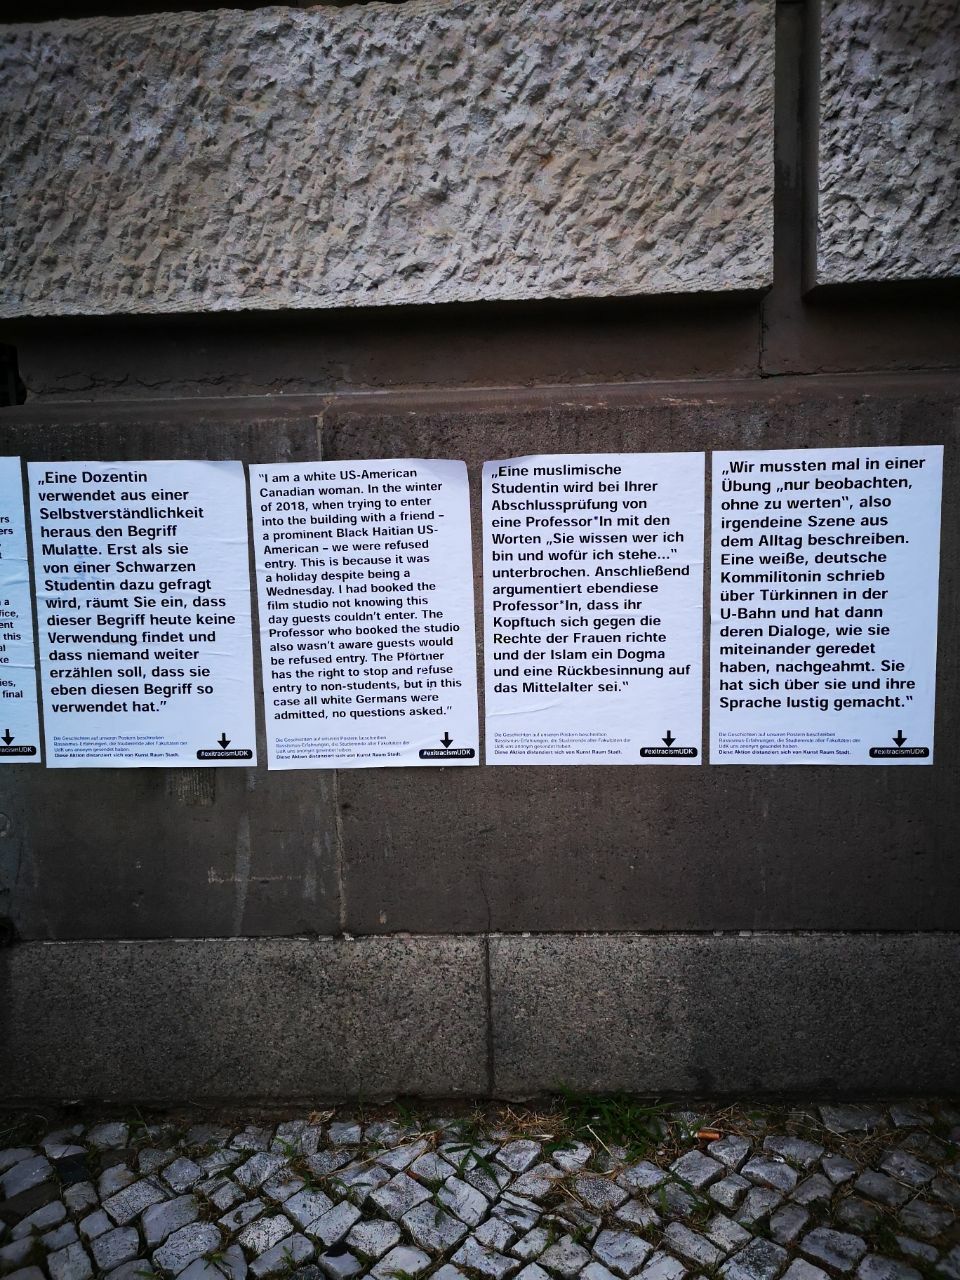 rs
ers
a
fice,
ent
this
al
ke
ies,
final
„Eine Dozentin
verwendet aus einer
Selbstverständlichkeit
heraus den Begriff
Mulatte. Erst als sie
von einer Schwarzen
Studentin dazu gefragt
wird, räumt Sie ein, dass
dieser Begriff heute keine
Verwendung findet und
dass niemand weiter
erzählen soll, dass sie
eben diesen Begriff so
verwendet hat.”
Die Geschichten auf unseren Postern beschreiben
Rassismus-Erfahrungen, die Studierende aller Fakultäten der
UdK uns anonym gesendet haben.
Diese Aktion distanziert sich von Kunst Raum Stadt.
#exitracismUDK
“I am a white US-American
Canadian woman. In the winter
of 2018, when trying to enter
into the building with a friend –
a prominent Black Haitian US-
American – we were refused
entry. This is because it was
a holiday despite being a
Wednesday. I had booked the
film studio not knowing this
day guests couldn’t enter. The
Professor who booked the studio
also wasn’t aware guests would
be refused entry. The Pförtner
has the right to stop and refuse
entry to non-students, but in this
case all white Germans were
admitted, no questions asked.”
Die Geschichten auf unseren Postern beschreiben
Rassismus-Erfahrungen, die Studierende aller Fakultäten der
UdK uns anonym gesendet haben.
Diese Aktion distanziert sich von Kunst Raum Stadt.
#exitracismUDK
„Eine muslimische
Studentin wird bei Ihrer
Abschlussprüfung von
eine Professor*In mit den
Worten „Sie wissen wer ich
bin und wofür ich stehe...“
unterbrochen. Anschließend
argumentiert ebendiese
Professor*In, dass ihr
Kopftuch sich gegen die
Rechte der Frauen richte
und der Islam ein Dogma
und eine Rückbesinnung auf
das Mittelalter sei.“
Die Geschichten auf unseren Postern beschreiben
Rassismus-Erfahrungen, die Studierende aller Fakultäten der
UdK uns anonym gesendet haben.
Diese Aktion distanziert sich von Kunst Raum Stadt.
#exitracismUDK
„Wir mussten mal in einer
Übung „nur beobachten,
ohne zu werten“, also
irgendeine Szene aus
dem Alltag beschreiben.
Eine weiße, deutsche
Kommilitonin schrieb
über Türkinnen in der
U-Bahn und hat dann
deren Dialoge, wie sie
miteinander geredet
haben, nachgeahmt. Sie
hat sich über sie und ihre
Sprache lustig gemacht.“
Die Geschichten auf unseren Postern beschreiben
Rassismus-Erfahrungen, die Studierende aller Fakultäten der
UdK uns anonym gesendet haben.
Diese Aktion distanziert sich von Kunst Raum Stadt.
#exitracismUDK